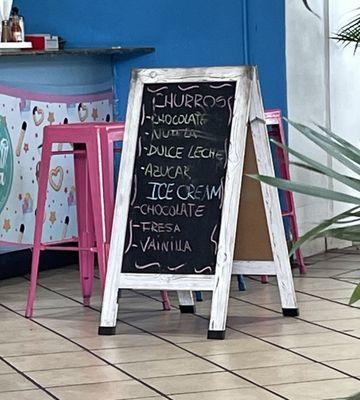 CHURROS
-CHOCOLATE
-NUTELLA
-DULCE LECHE
-AZUCAR
ICE CREAM
-CHOCOLATE
-FRESA
-VAINILLA